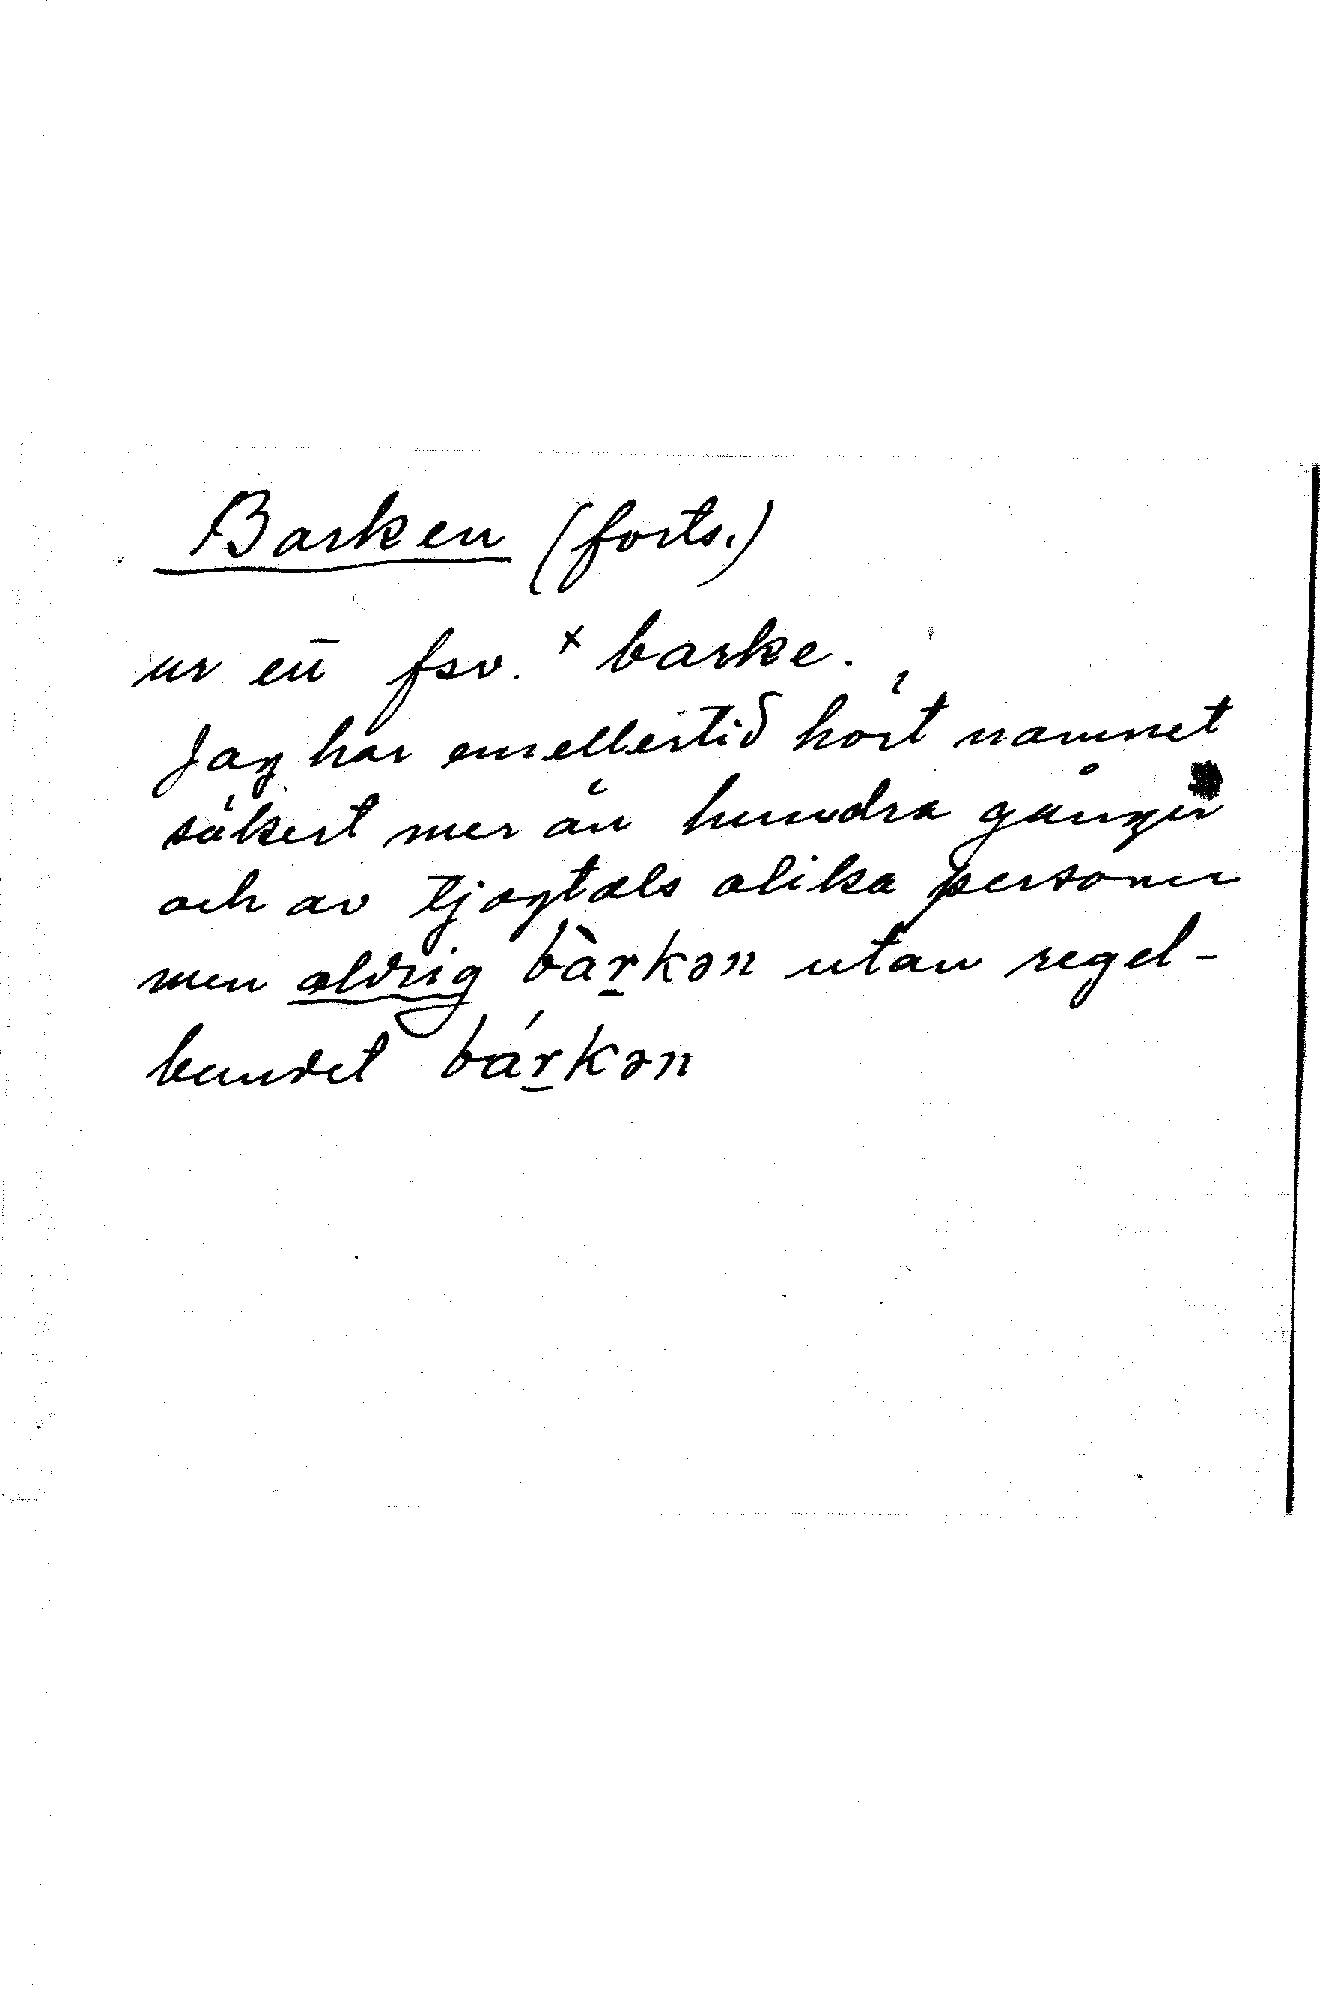 Barken (forts.)
ur en̄ fsv. ˣ barke.
Jag har emellertid hört namnet
säkert mer än hundra gånger
och av tjogtals olika personer
men aldrig bàr̲kən utan regel-
bundet bár̲kən